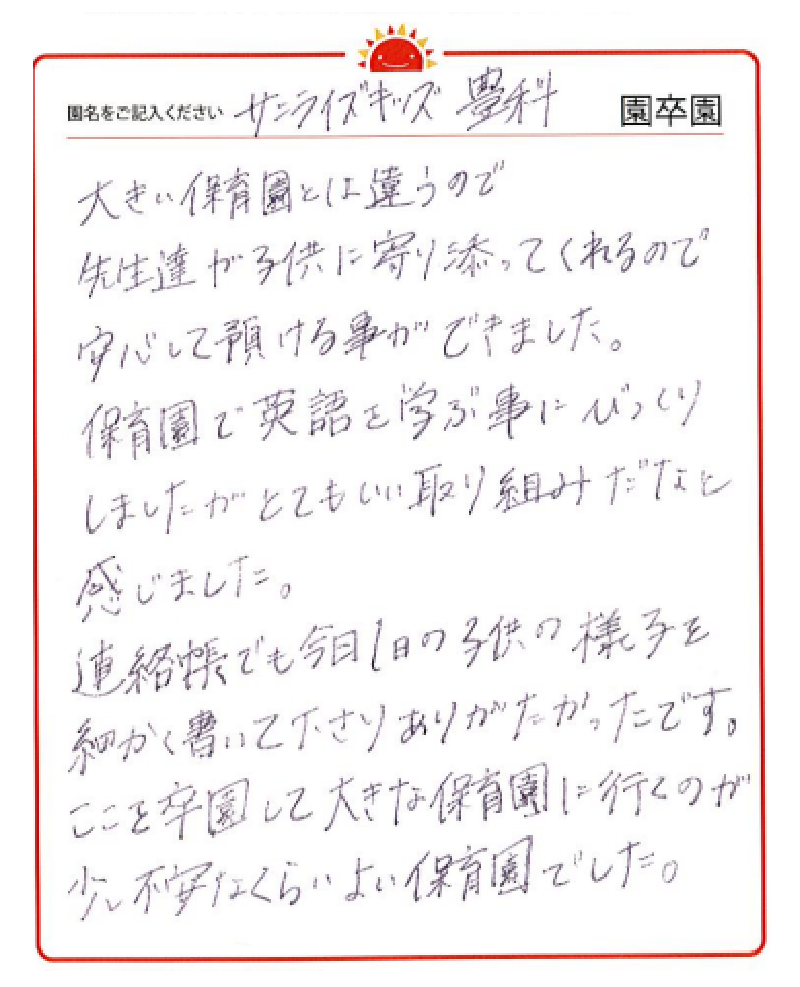 園名をご記入ください サンライズキッズ 豊科 園卒園
大きい保育園とは違うので
先生達が子供に寄り添ってくれるので
安心して預ける事ができました。
保育園で英語を学ぶ事にびっくり
しましたがとてもいい取り組みだなと
感じました。
連絡帳でも今日1日の子供の様子を
細かく書いて下さりありがたかったです。
ここを卒園して大きな保育園に行くのが
少し不安なくらいよい保育園でした。